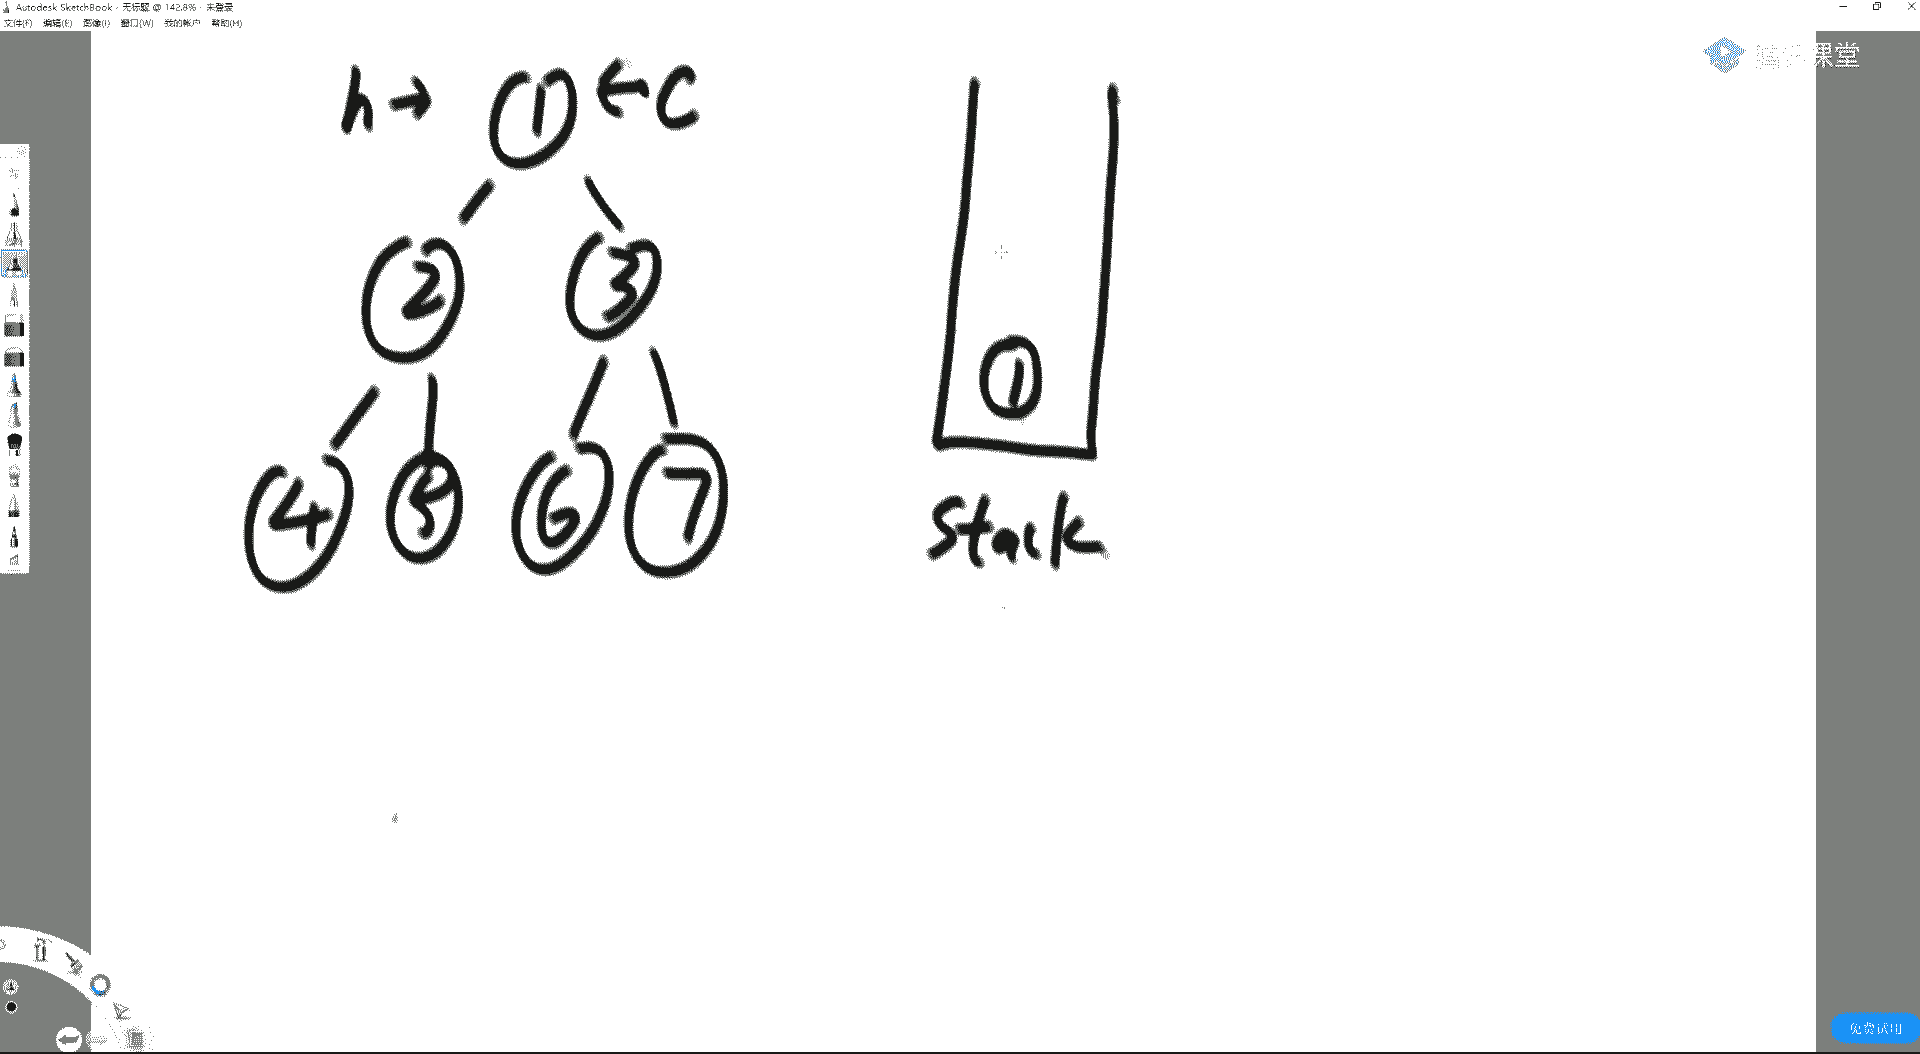 Autodesk SketchBook - 无标题 @ 142.8% - 未登录
文件(F) 编辑(E) 图像(I) 窗口(W) 我的帐户 帮助(H)
腾讯课堂
h → 1 ← C
2 3
4 5 6 7
1
Stack
免费试用